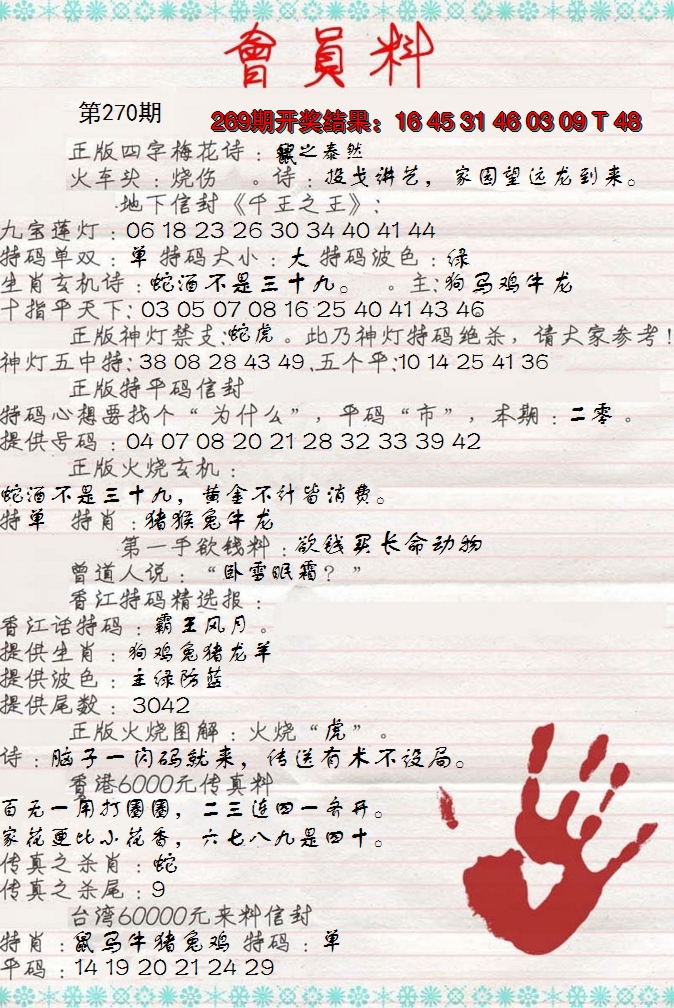 會員料
第270期
269期开奖结果：16 45 31 46 03 09 T 48
正版四字梅花诗：鼠之泰然
火车头：烧伤 。诗：投戈讲艺，家国望远龙到来。
地下信封《千王之王》：
九宝莲灯：06 18 23 26 30 34 40 41 44
特码单双：单 特码大小：大 特码波色：绿
生肖玄机诗：蛇酒不是三十九。 。主：狗马鸡牛龙
十指平天下：03 05 07 08 16 25 40 41 43 46
正版神灯禁支：蛇虎。此乃神灯特码绝杀，请大家参考！
神灯五中特：38 08 28 43 49、五个平：10 14 25 41 36
正版特平码信封
特码心想要找个“为什么”，平码“市”，本期：二零。
提供号码：04 07 08 20 21 28 32 33 39 42
正版火烧玄机：
蛇酒不是三十九，黄金不计皆消费。
特单 特肖：猪猴兔牛龙
第一手欲钱料：欲钱买长命动物
曾道人说：“卧雪眠霜？”
香江特码精选报：
香江话特码：霸王风月。
提供生肖：狗鸡兔猪龙羊
提供波色：主绿防蓝
提供尾数：3042
正版火烧图解：火烧“虎”。
诗：脑子一闪码就来，传送有术不设局。
香港6000元传真料
百无一用打圈圈，二三连四一齐开。
家花更比小花香，六七八九是四十。
传真之杀肖：蛇
传真之杀尾：9
台湾60000元来料信封
特肖：鼠马牛猪兔鸡 特码：单
平码：14 19 20 21 24 29